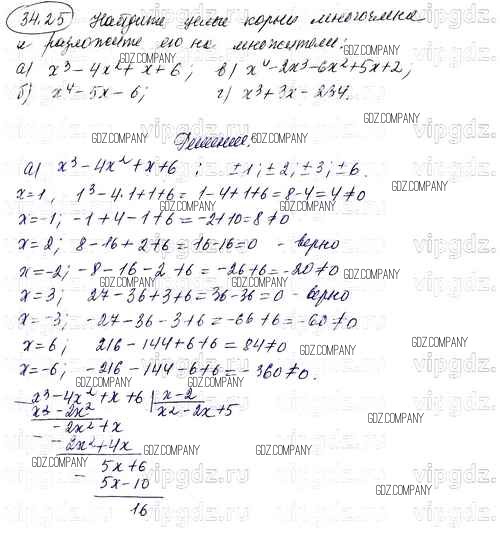 34.25 Найдите целые корни многочлена
и разложите его на множители:
а) x³-4x²+x+6; в) x⁴-2x³-6x²+5x+2;
б) x⁴-5x-6; г) x³+3x-234.
Решение.
а) x³-4x²+x+6 ; ±1; ±2; ±3; ±6.
x=1, 1³-4·1+1+6=1-4+1+6=8-4=4≠0
x=-1; -1+4-1+6=-2+10=8≠0
x=2; 8-16+2+6=16-16=0 - верно
x=-2; -8-16-2+6=-26+6=-20≠0
x=3; 27-36+3+6=36-36=0 - верно
x=-3; -27-36-3+6=-66+6=-60≠0
x=6; 216-144+6+6=84≠0
x=-6; -216-144-6+6=-360≠0.
- x³-4x²+x+6 | x-2
x³-2x² x²-2x+5
-2x²+x
- -2x²+4x
5x+6
- 5x-10
16
GDZ.COMPANY
vipgdz.ru